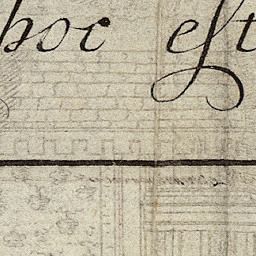 hoc eſt